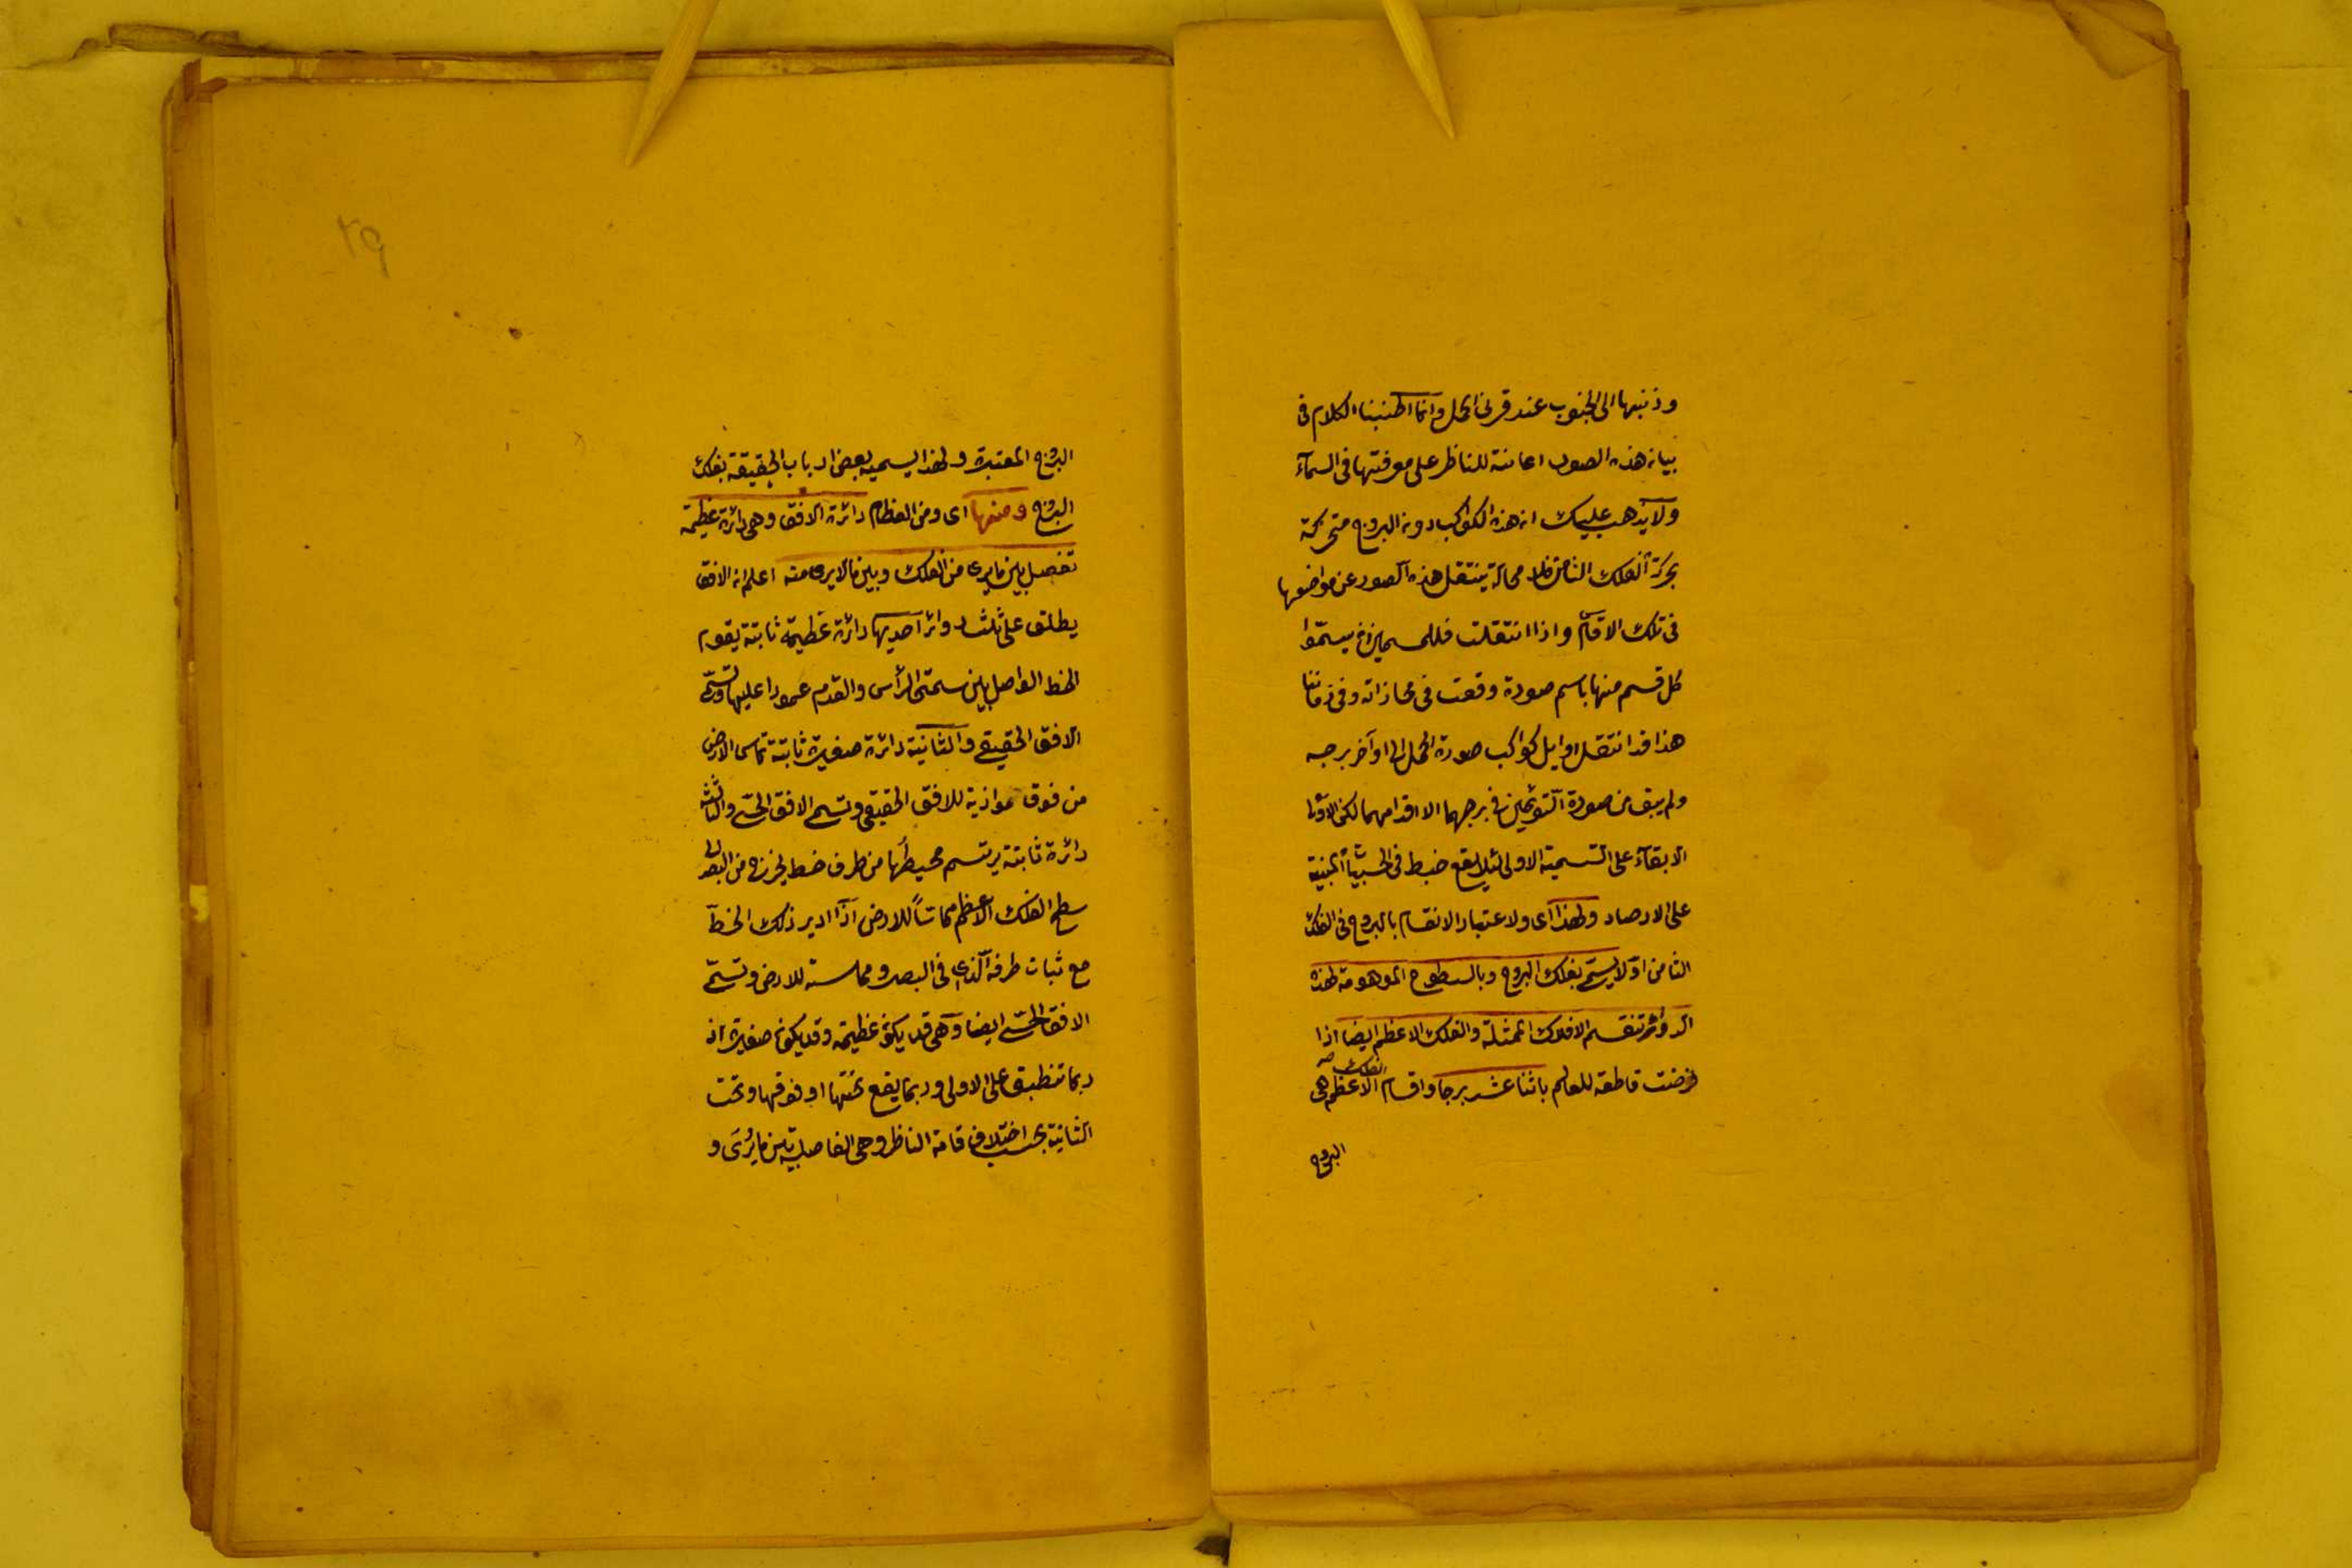 وذنبها الى الجنوب عند قرنى الحمل وانما اطنبنا الكلام فى
بيان هذه الصور اعانة للناظر على معرفتها فى السمآء
ولا يذهب عليك ان هذه الكواكب دون البروج متحركة
بحركة الفلك الثامن فلا محالة ينتقل هذه الصور عن مواضعها
فى تلك الاقسام واذا انتقلت فللمسمين ان يسمّوا
كل قسم منها باسم صورة وقعت فى محاذاته وفى زماننا
هذا قد انتقل اوايل كواكب صورة الحمل الى اواخر برجه
ولم يبق من صورة التوئمين فى برجهما الا اقدامهما لكن الاولى
الابقآء على التسمية الاولى لئلا يقع خبط فى الحسبانات المبنية
على الارصاد ولهذا اى ولاعتبار الانقسام بالبروج فى الفلك
الثامن اولا يسمّى بفلك البروج وبالسطوح الموهومة لهذه
الدوائر تنقسم الافلاك الممثلة والفلك الاعظم ايضا اذا
فرضت قاطعة للعالم باثنا عشر برجا واقسام الفلك الاعظم هى
البروج
٢٩
البروج المعتبرة ولهذا يسميه بعض ارباب الحقيقة بفلك
البروج ومنها اى ومن العظام دائرة الافق وهى دائرة عظيمة
تفصل بين ما يرى من الفلك وبين ما لا يرى منه اعلم ان الافق
يطلق على ثلث دوائر احديها دائرة عظيمة ثابتة يقوم
الخط الواصل بين سمتى الرأس والقدم عمودا عليها وتسمّى
الافق الحقيقى والثانية دائرة صغيرة ثابتة تماس الارض
من فوق موازية للافق الحقيقى وتسمى الافق الحسّى والثالثة
دائرة ثابتة يرتسم محيطها من طرف خط يخرج من البصر الى
سطح الفلك الاعظم مماسّاً للارض اذا ادير ذلك الخط
مع ثبات طرفه الذى فى البصر ومماسته للارض وتسمّى
الافق الحسّى ايضا وهى قد يكون عظيمة وقد يكون صغيرة اذ
ربما تنطبق على الاولى وربما يقع تحتها او فوقها وتحت
الثانية بحسب اختلاف قامة الناظر وهى الفاصلة بين ما يُرَى و